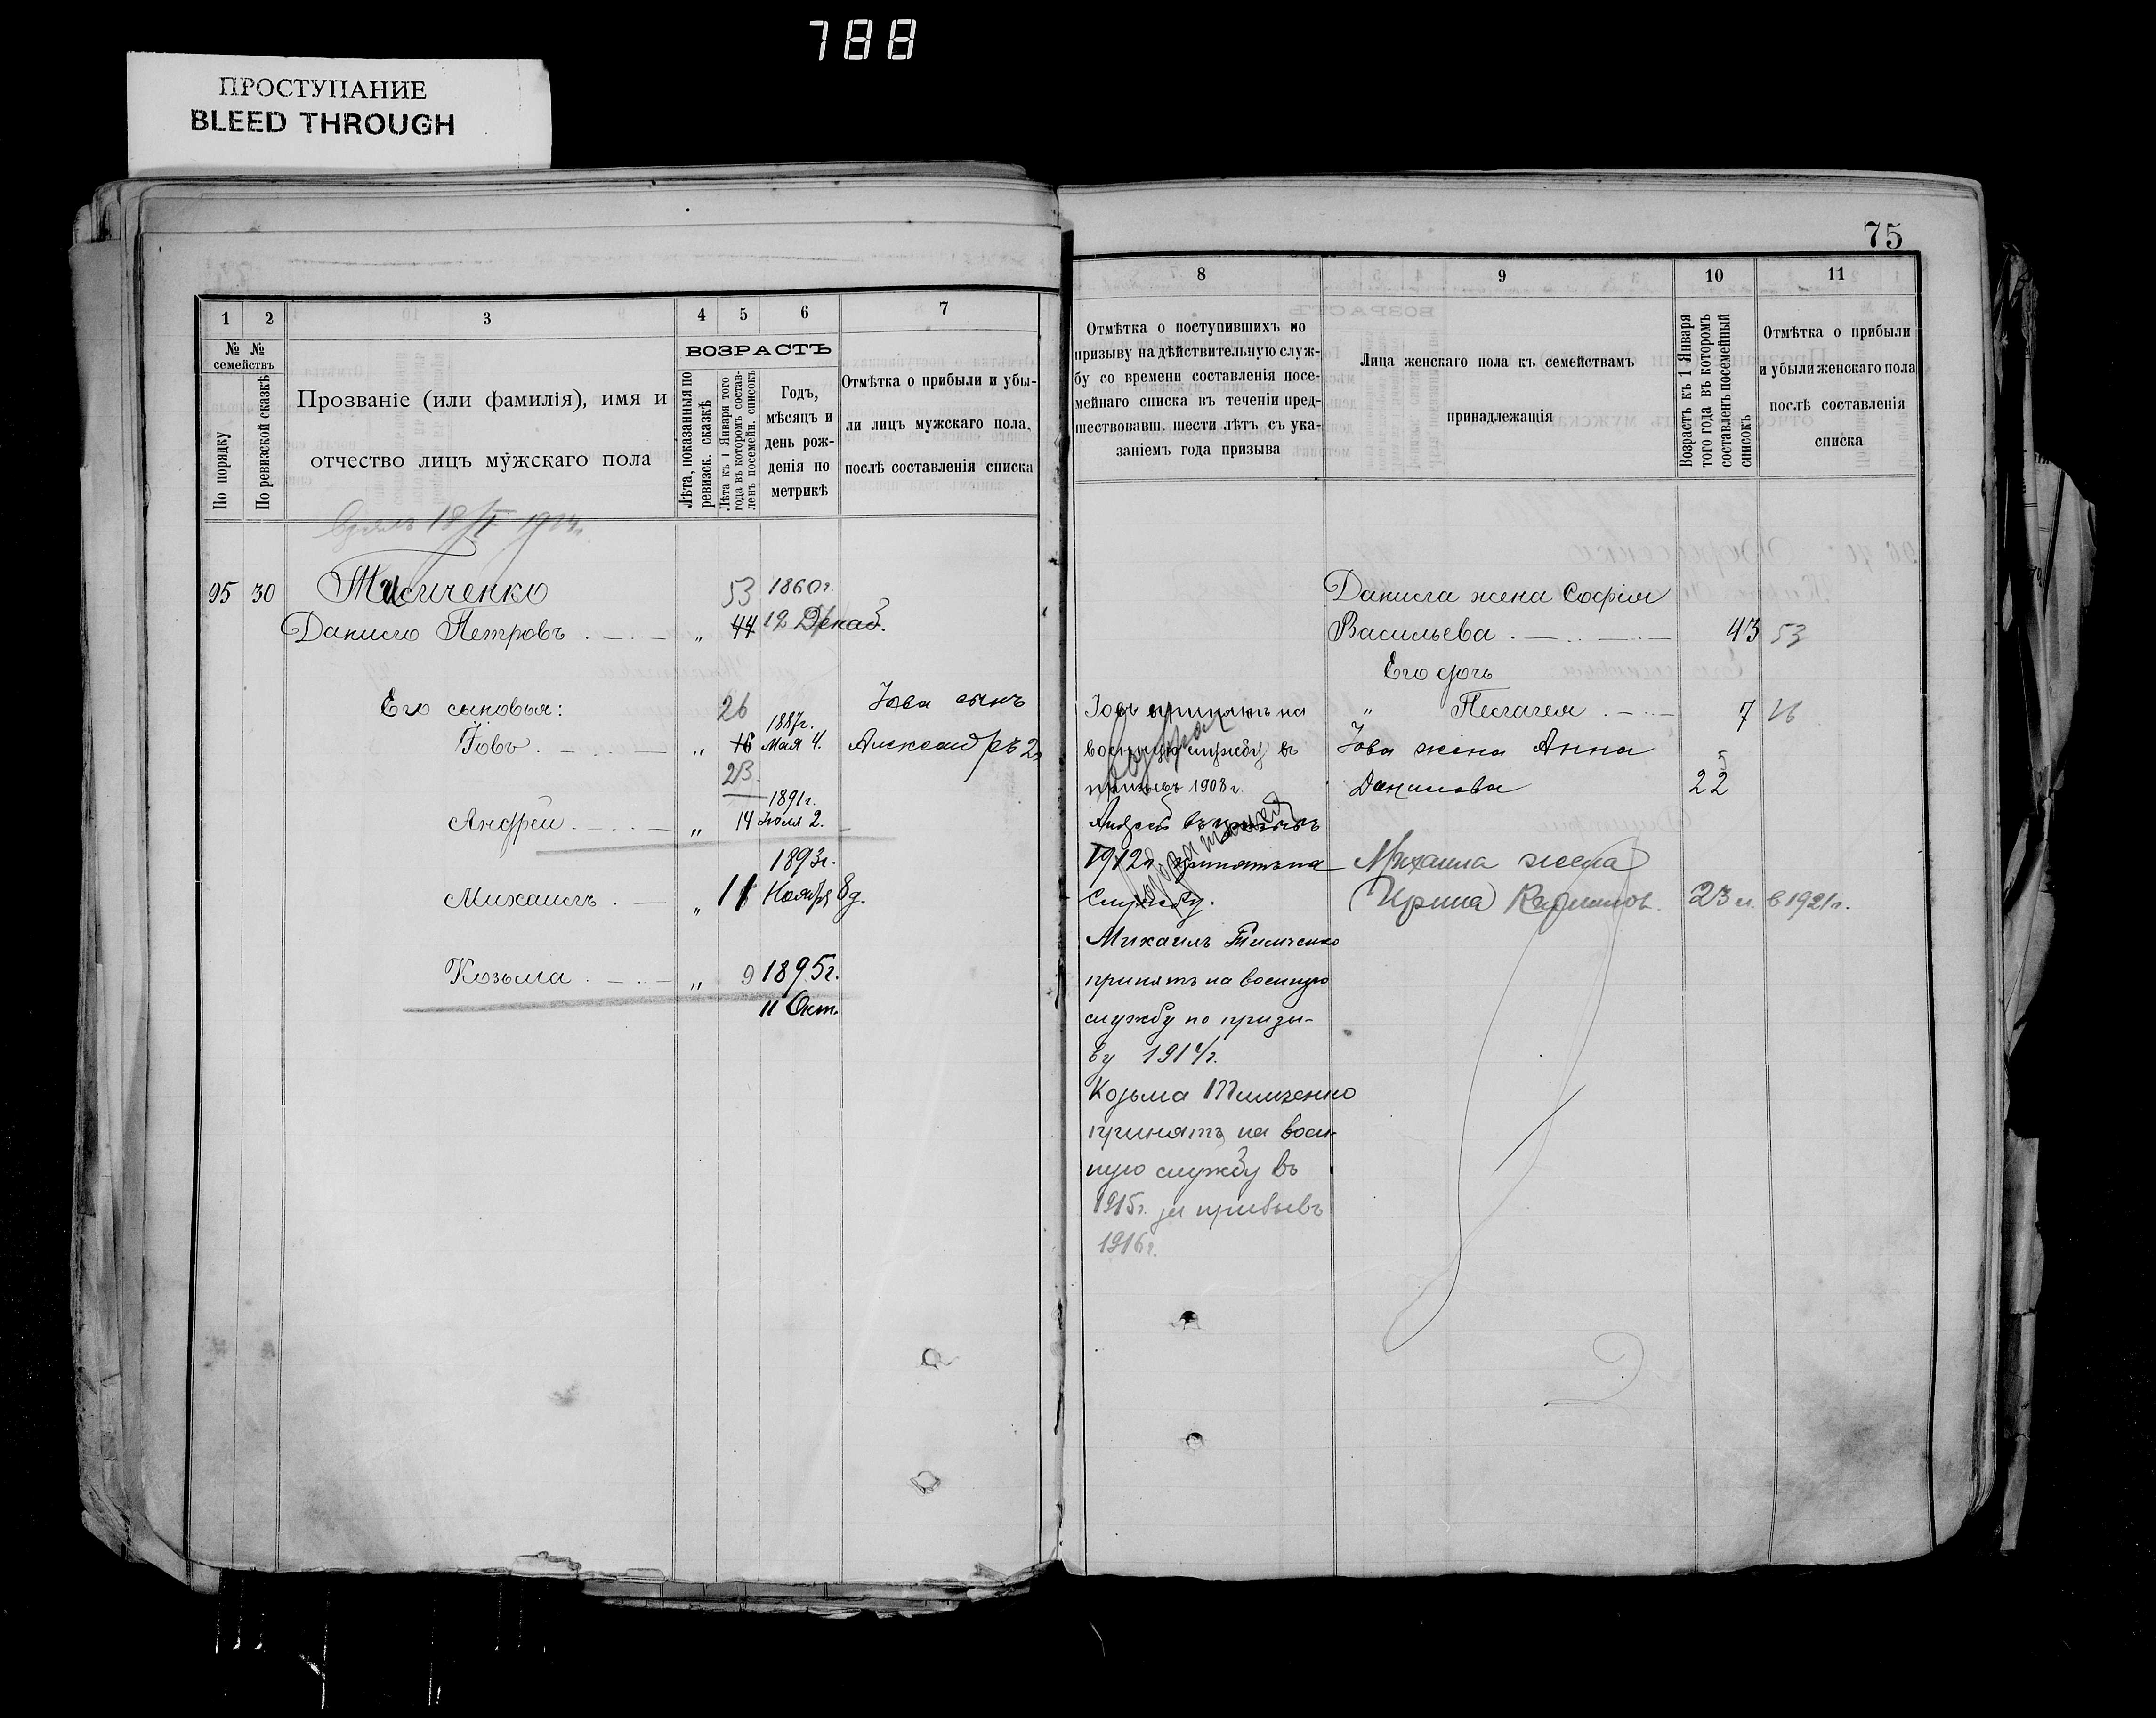 788
ПРОСТУПАНИЕ
BLEED THROUGH
75
1 2 3 4 5 6 7
№ № семействъ
По порядку
По ревизской сказкѣ
Прозваніе (или фамилія), имя и
отчество лицъ мужскаго пола
ВОЗРАСТЪ
Лѣта, показанныя по
ревизск. сказкѣ
Лѣта къ 1 Января того
года въ которомъ состав-
ленъ посемейн. списокъ
Годъ,
мѣсяцъ и
день рож-
денія по
метрикѣ
Отмѣтка о прибыли и убы-
ли лицъ мужскаго пола,
послѣ составленія списка
18/I
95 30 Тимченко 53 1860г.
Данило Петровъ „ 44 12 Декаб.
Его сыновья: 26 1887г. Іова сынъ
Іовъ „ 16 Мая 4. Александръ 2
23
1891г.
Андрей „ 14 Іюля 2.
1893г.
Михаилъ „ 11 Ноября 8 д.
Козьма „ 9 1895г.
11 Окт.
8 9 10 11
Отмѣтка о поступившихъ по
призыву на дѣйствительную служ-
бу со времени составленія посе-
мейнаго списка въ теченіи пред-
шествовавш. шести лѣтъ съ ука-
заніемъ года призыва
Лица женскаго пола къ семействамъ
принадлежащія
Возрастъ къ 1 Января
того года въ которомъ
составленъ посемейный
списокъ
Отмѣтка о прибыли
и убыли женскаго пола
послѣ составленія
списка
Данила жена Софія
Васильева 43 53
Его дочь
„ Пелагея 7 16
Іова жена Анна
Данилова 22
Михаила жена
Ирина 23 в 1921г.
Іовъ принятъ на
военную службу въ
призывъ 1908г.
Андрей въ призывъ
1912г. принятъ на
службу.
Михаилъ Тимченко
принятъ на военную
службу по призы-
ву 1914г.
Козьма Тимченко
принятъ на воен-
ную службу въ
1915г. за призывъ
1916г.